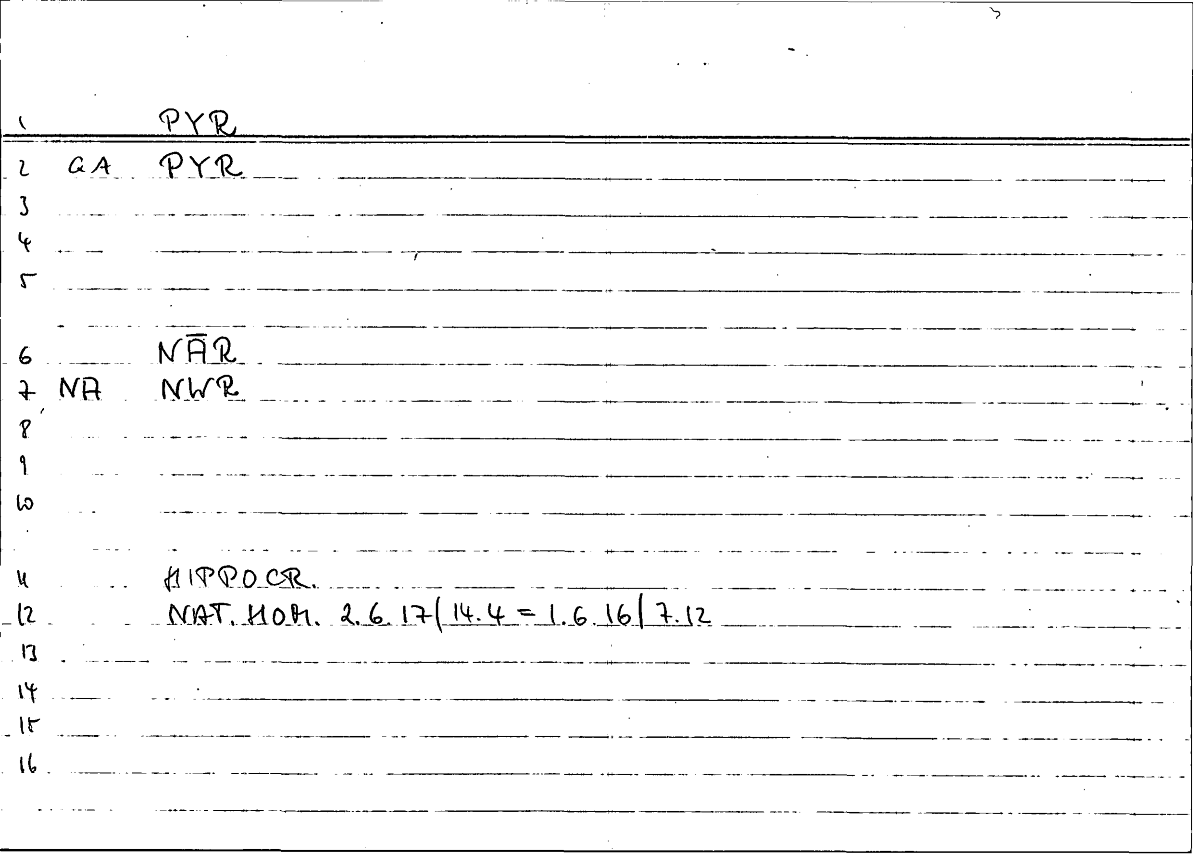 1 PYR
2 GA PYR
3
4
5
6 NĀR
7 NA NWR
8
9
10
11 HIPPOCR.
12 NAT. HOM. 2.6.17/14.4 = 1.6.16/7.12
13
14
15
16